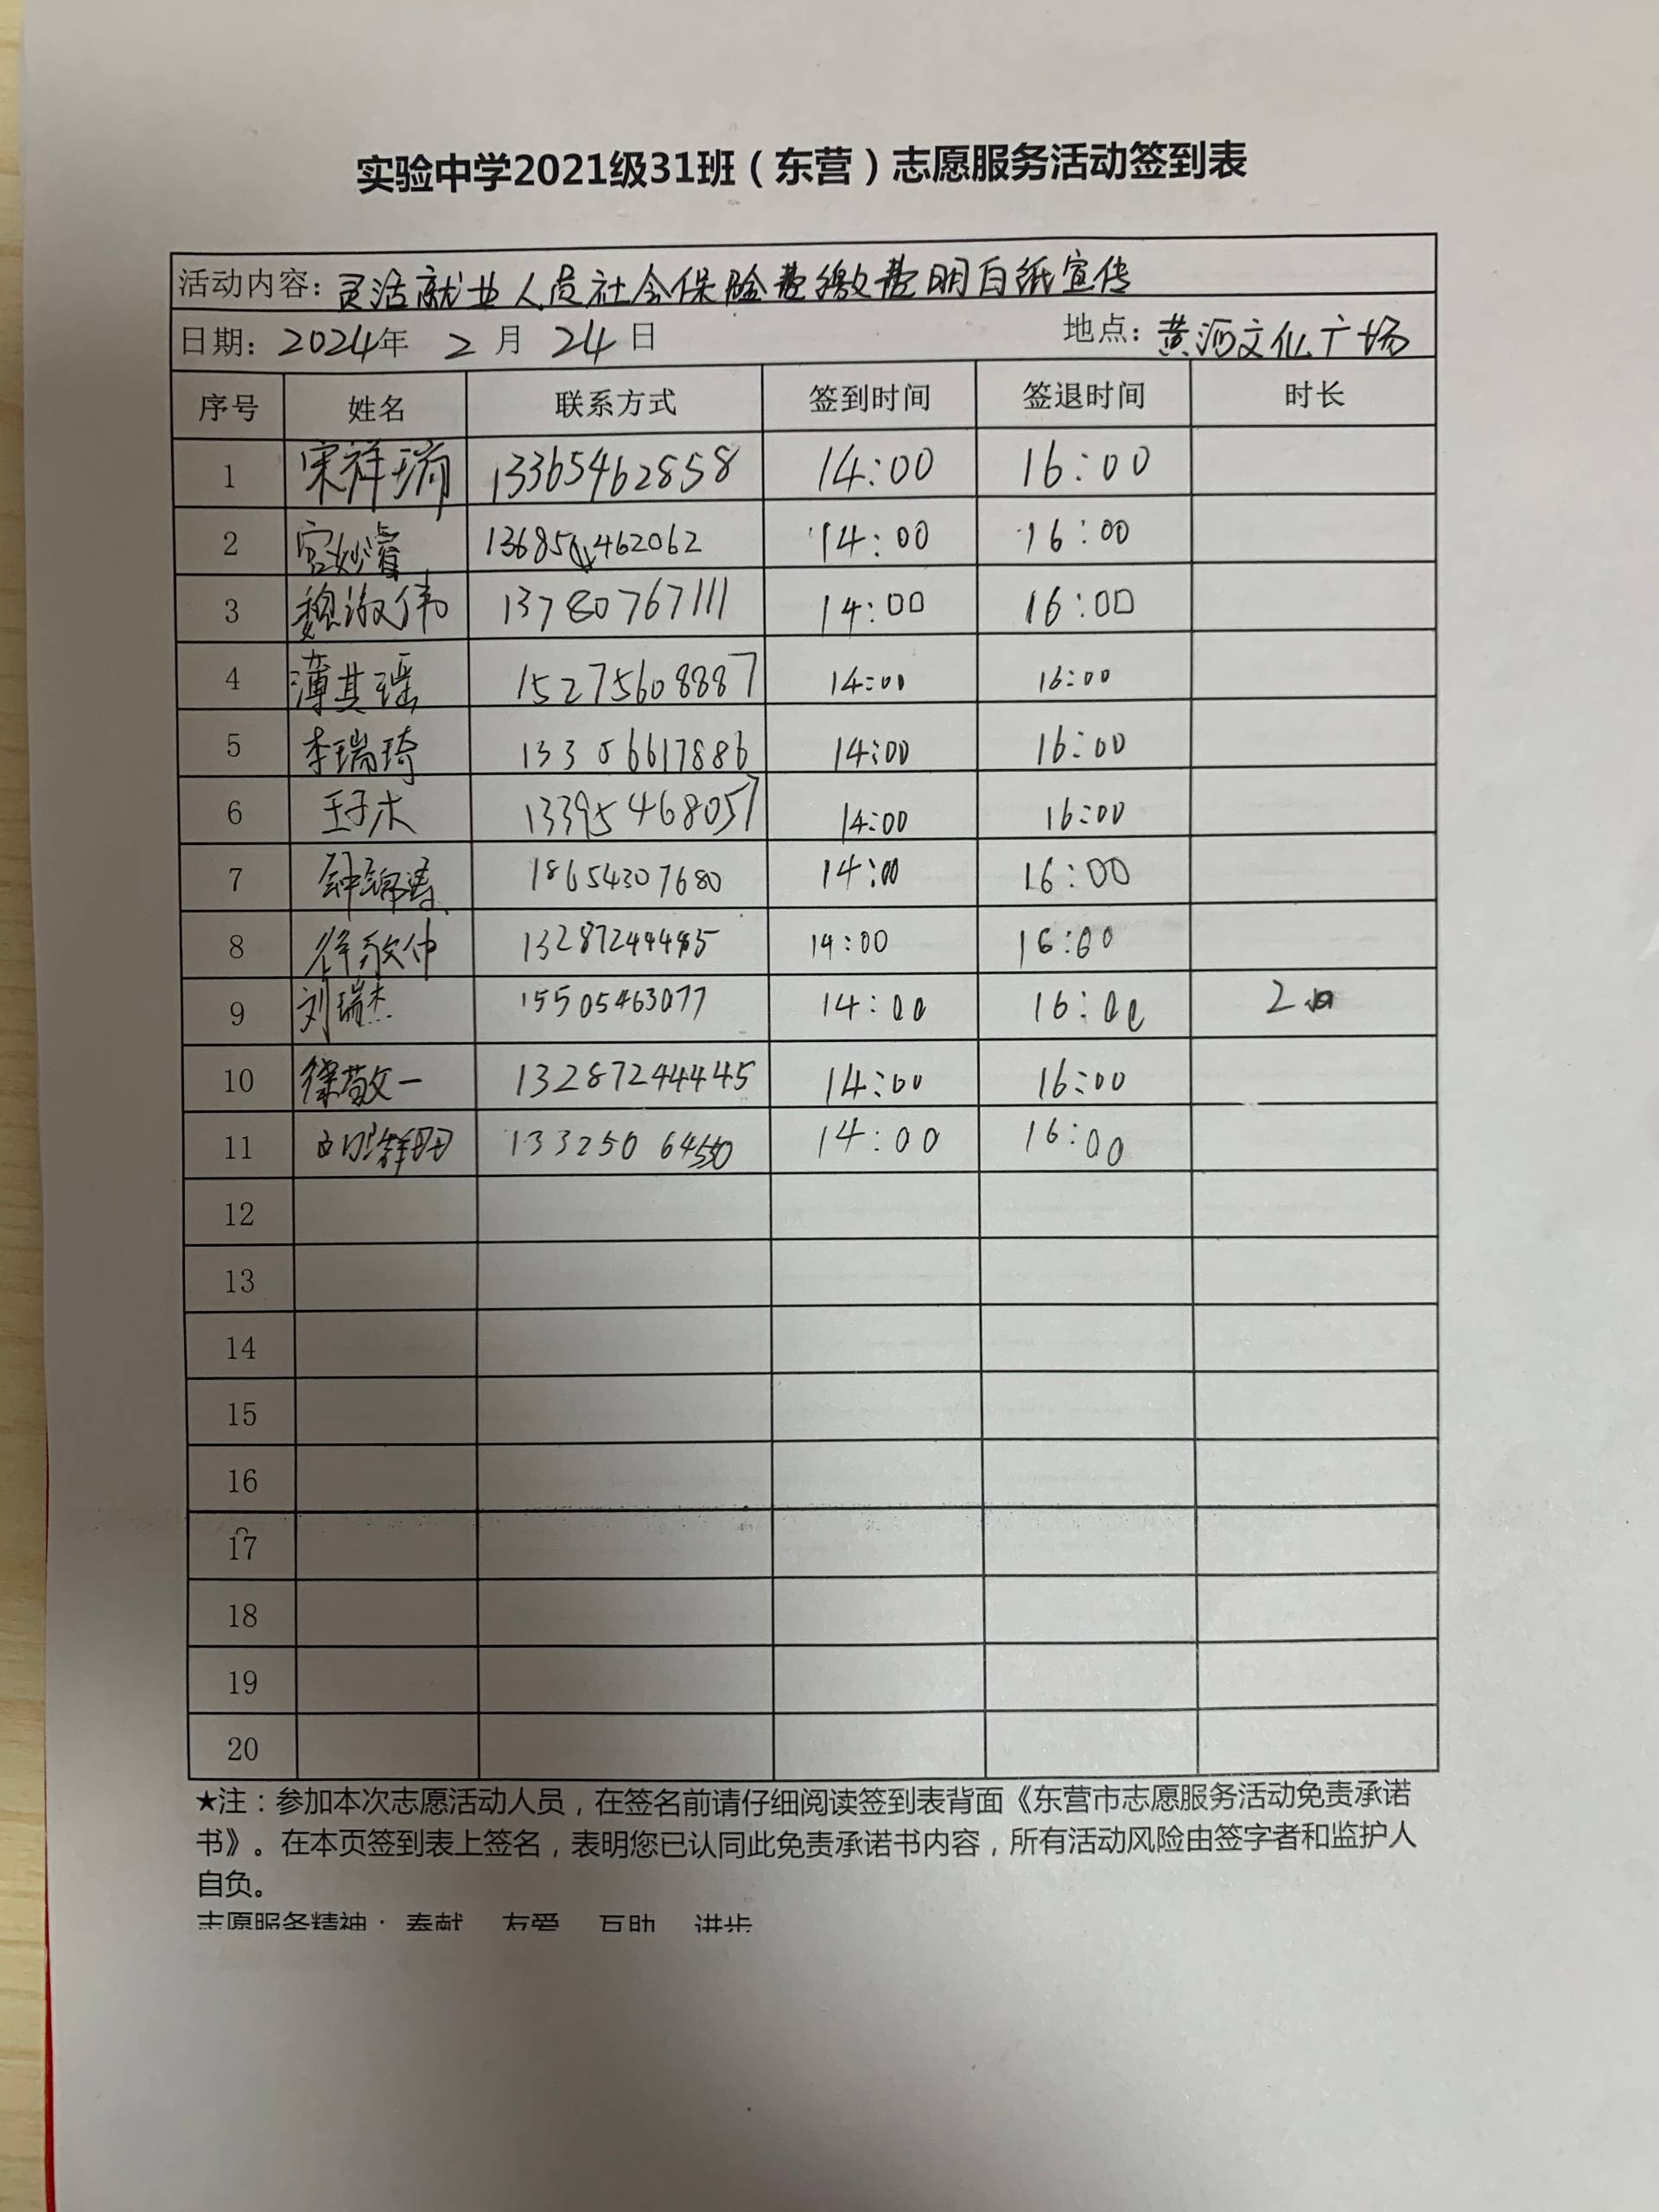 实验中学2021级31班（东营）志愿服务活动签到表
活动内容：灵活就业人员社会保险费缴费明白纸宣传
日期：2024年 2 月 24 日 地点：黄河文化广场
序号 姓名 联系方式 签到时间 签退时间 时长
1 宋祥瑞 13365462858 14:00 16:00
2 宫妙睿 13685462062 14:00 16:00
3 魏淑伟 13780767111 14:00 16:00
4 薄其瑶 15275608887 14:00 16:00
5 李瑞琦 13306617886 14:00 16:00
6 王子木 13395468057 14:00 16:00
7 钟锦涛 18654307680 14:00 16:00
8 徐敬仲 13287244445 14:00 16:00
9 刘瑞杰 15505463077 14:00 16:00 2
10 徐敬一 13287244445 14:00 16:00
11 14:00 16:00
12
13
14
15
16
17
18
19
20
★注：参加本次志愿活动人员，在签名前请仔细阅读签到表背面《东营市志愿服务活动免责承诺
书》。在本页签到表上签名，表明您已认同此免责承诺书内容，所有活动风险由签字者和监护人
自负。
志愿服务精神： 奉献 友爱 互助 进步